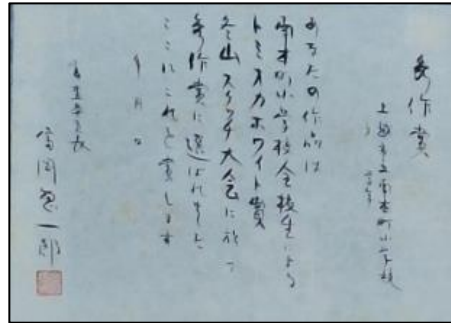 秀作賞
上越市立南本町小学校
あなたの作品は
南本町小学校全校生による
トミオカホワイト賞
冬山スケッチ大会に於て
秀作賞に選ばれました
ここにこれを賞します
年 月 日
審査委員長
富岡惣一郎